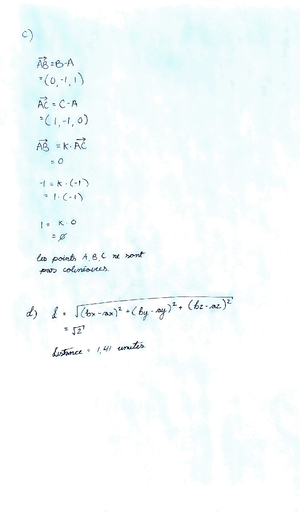 c)
AB⃗ = B-A
= (0, -1, 1)
AC⃗ = C-A
= (1, -1, 0)
AB⃗ = K · AC⃗
= 0
-1 = K · (-1)
= 1 · (-1)
1 = K · 0
= ∅
Les points A, B, C ne sont
pas colinéaires.
d) d = √(bx-ax)² + (by-ay)² + (bz-az)²
= √2
distance = 1,41 unités